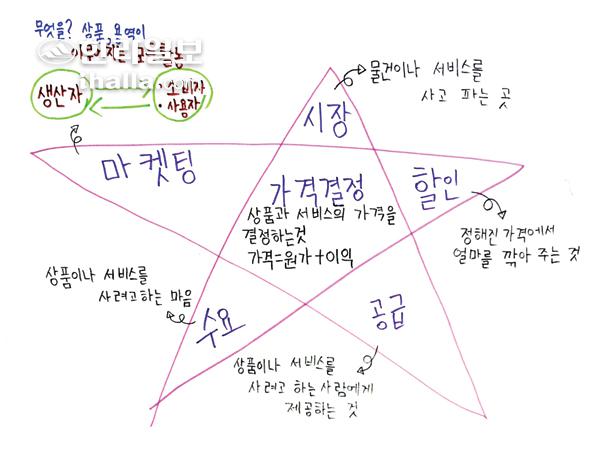 무엇을? 상품, 용역이
한라일보
ihalla.com
생산자
• 소비자
• 사용자
시장
물건이나 서비스를
사고 파는 곳
마켓팅
가격결정
상품과 서비스의 가격을
결정하는것
가격=원가+이익
할인
정해진 가격에서
얼마를 깎아 주는 것
상품이나 서비스를
사려고하는 마음
수요
공급
상품이나 서비스를
사려고 하는사람에게
제공하는 것